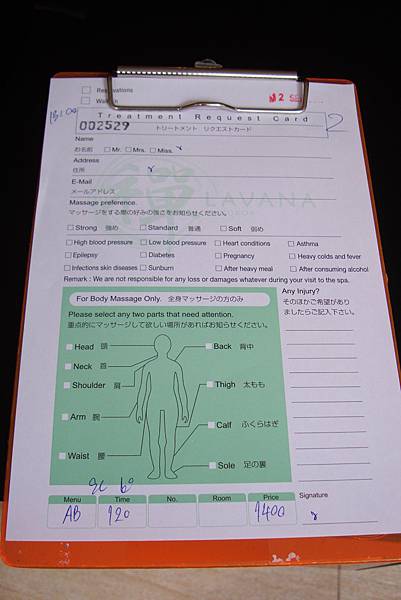 Reservations
Walk in
Treatment Request Card
002529
トリートメント リクエストカード
2
Name
お名前 Mr. Mrs. Miss.
Address
住所
E-Mail
メールアドレス
LAVANA
Massage preference.
マッサージをする際の好みの強さをお知らせください。
Strong 強め Standard 普通 Soft 弱め
High blood pressure Low blood pressure Heart conditions Asthma
Epilepsy Diabetes Pregnancy Heavy colds and fever
Infections skin diseases Sunburn After heavy meal After consuming alcohol
Remark : We are not responsible for any loss or damages whatever during your visit to the spa.
For Body Massage Only. 全身マッサージの方のみ
Please select any two parts that need attention.
重点的にマッサージして欲しい場所があればお知らせください。
Any Injury?
そのほかご希望があり
ましたらご記入下さい。
Head 頭 Back 背中
Neck 首
Shoulder 肩 Thigh 太もも
Arm 腕 Calf ふくらはぎ
Waist 腰 Sole 足の裏
Menu Time No. Room Price Signature
AB 120 1400